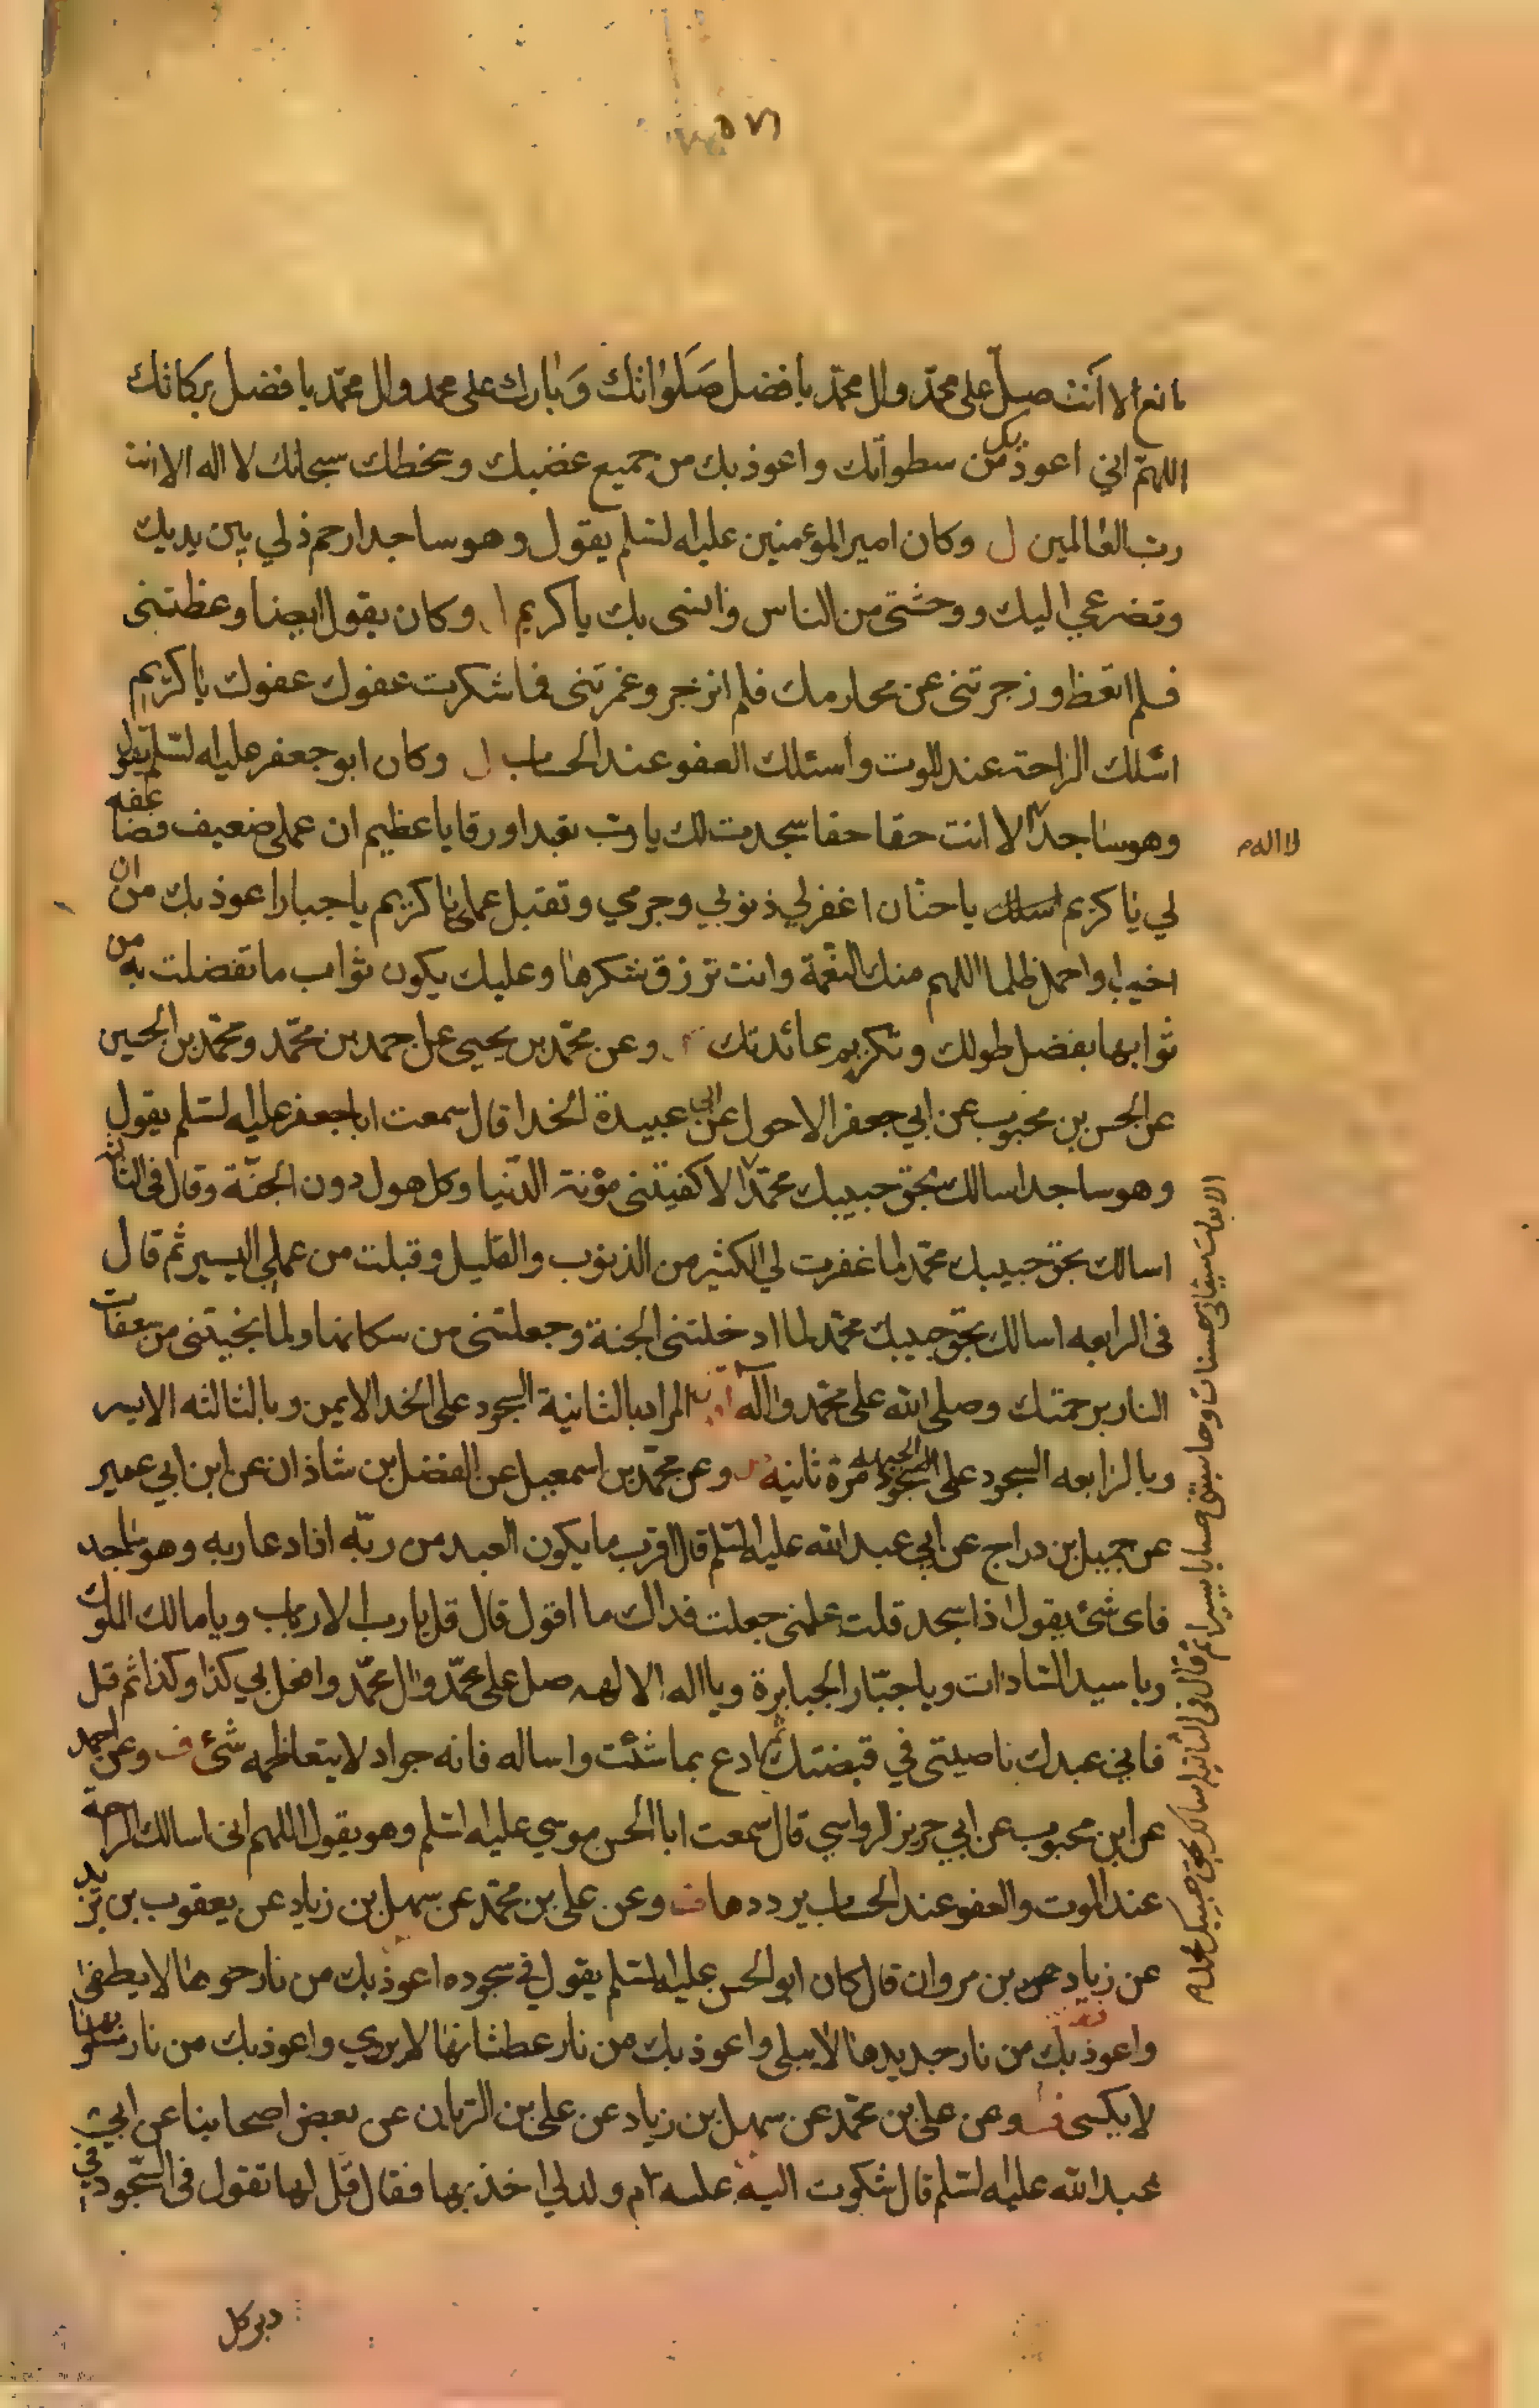 مانع الا انت صل على محمد وال محمد بافضل صلواتك وبارك على محمد وال محمد بافضل بركاتك
اللهم اني اعوذ بك من سطواتك واعوذ بك من جميع غضبك وسخطك سبحانك لا اله الا انت
رب العالمين ل وكان امير المؤمنين عليه السلم يقول وهو ساجد ارحم ذلي بين يديك
وتضرعي اليك ووحشتي من الناس وانسى بك يا كريم وكان يقول ايضا وعظتني
فلم اتعظ وزجرتني عن محارمك فلم انزجر وغمرتني فما شكرت عفوك عفوك يا كريم
اسئلك الراحة عند الموت واسئلك العفو عند الحساب ل وكان ابو جعفر عليه السلم يقول
وهو ساجد الا انت حقا حقا سجدت لك يا رب تعبدا ورقا يا عظيم ان عملي ضعيف فضاعفه
لا اله م
لي يا كريم يا حنان اغفر لي ذنوبي وجرمي وتقبل عملي يا كريم يا جبار اعوذ بك من ان
اخيب او احمل ظلما اللهم منك النعمة وانت ترزق شكرها وعليك يكون ثواب ما تفضلت به من
ثوابها بفضل طولك وبكريم عائدتك وعن محمد بن يحيى عن احمد بن محمد ومحمد بن الحسين
عن الحسن بن محبوب عن ابي جعفر الاحول عن ابي عبيدة الحذا قال سمعت ابا جعفر عليه السلم يقول
وهو ساجد اسالك بحق حبيبك محمد الا كفيتني مؤنة الدنيا وكل هول دون الجنة وقال في الثالثة
اسالك بحق حبيبك محمد لما غفرت لي الكثير من الذنوب والقليل وقبلت من عملي اليسير ثم قال
في الرابعه اسالك بحق حبيبك محمد لما ادخلتني الجنة وجعلتني من سكانها ولما نجيتني من سعفات
النار برحمتك وصلى الله على محمد واله المراد بالثانية السجود على الخد الايمن وبالثالثه الايسر
وبالرابعه السجود على الجبهه مرة ثانيه وعن محمد بن اسمعيل عن الفضل بن شاذان عن ابن ابي عمير
عن جميل بن دراج عن ابي عبد الله عليه السلم قال اقرب ما يكون العبد من ربه اذا دعا ربه وهو ساجد
فاى شئ يقول اذا سجد قلت علمنى جعلت فداك ما اقول قال قل يا رب الارباب ويا مالك الملوك
ويا سيد السادات ويا جبار الجبابرة ويا اله الالهه صل على محمد وال محمد وافعل بي كذا وكذا ثم قل
فاني عبدك ناصيتي في قبضتك ثم ادع بما شئت واساله فانه جواد لا يتعاظمه شئ ف وعن احمد
عن ابن محبوب عن ابي جرير الرواسي قال سمعت ابا الحسن موسي عليه السلم وهو يقول اللهم اني اسالك الراحة
عند الموت والعفو عند الحساب يرددها ف وعن علي بن محمد عن سهل بن زياد عن يعقوب بن يزيد
عن زياد بن مروان قال كان ابو الحسن عليه السلم يقول في سجوده اعوذ بك من نار حرها لا يطفى
واعوذ بك من نار جديدها لا يبلى واعوذ بك من نار عطشانها لا يروي واعوذ بك من نار مسلوبها
لا يكسى ف وعن علي بن محمد عن سهل بن زياد عن علي بن الريان عن بعض اصحابنا عن ابي
عبد الله عليه السلم قال شكوت اليه ام ولد لي اخذ بها فقال قل لها تقول في السجود في
دبر كل
الا بدلت سيئاتي حسنات وحاسبتني حسابا يسيرا ثم قال في الثانية اسالك بحق حبيبك محمد